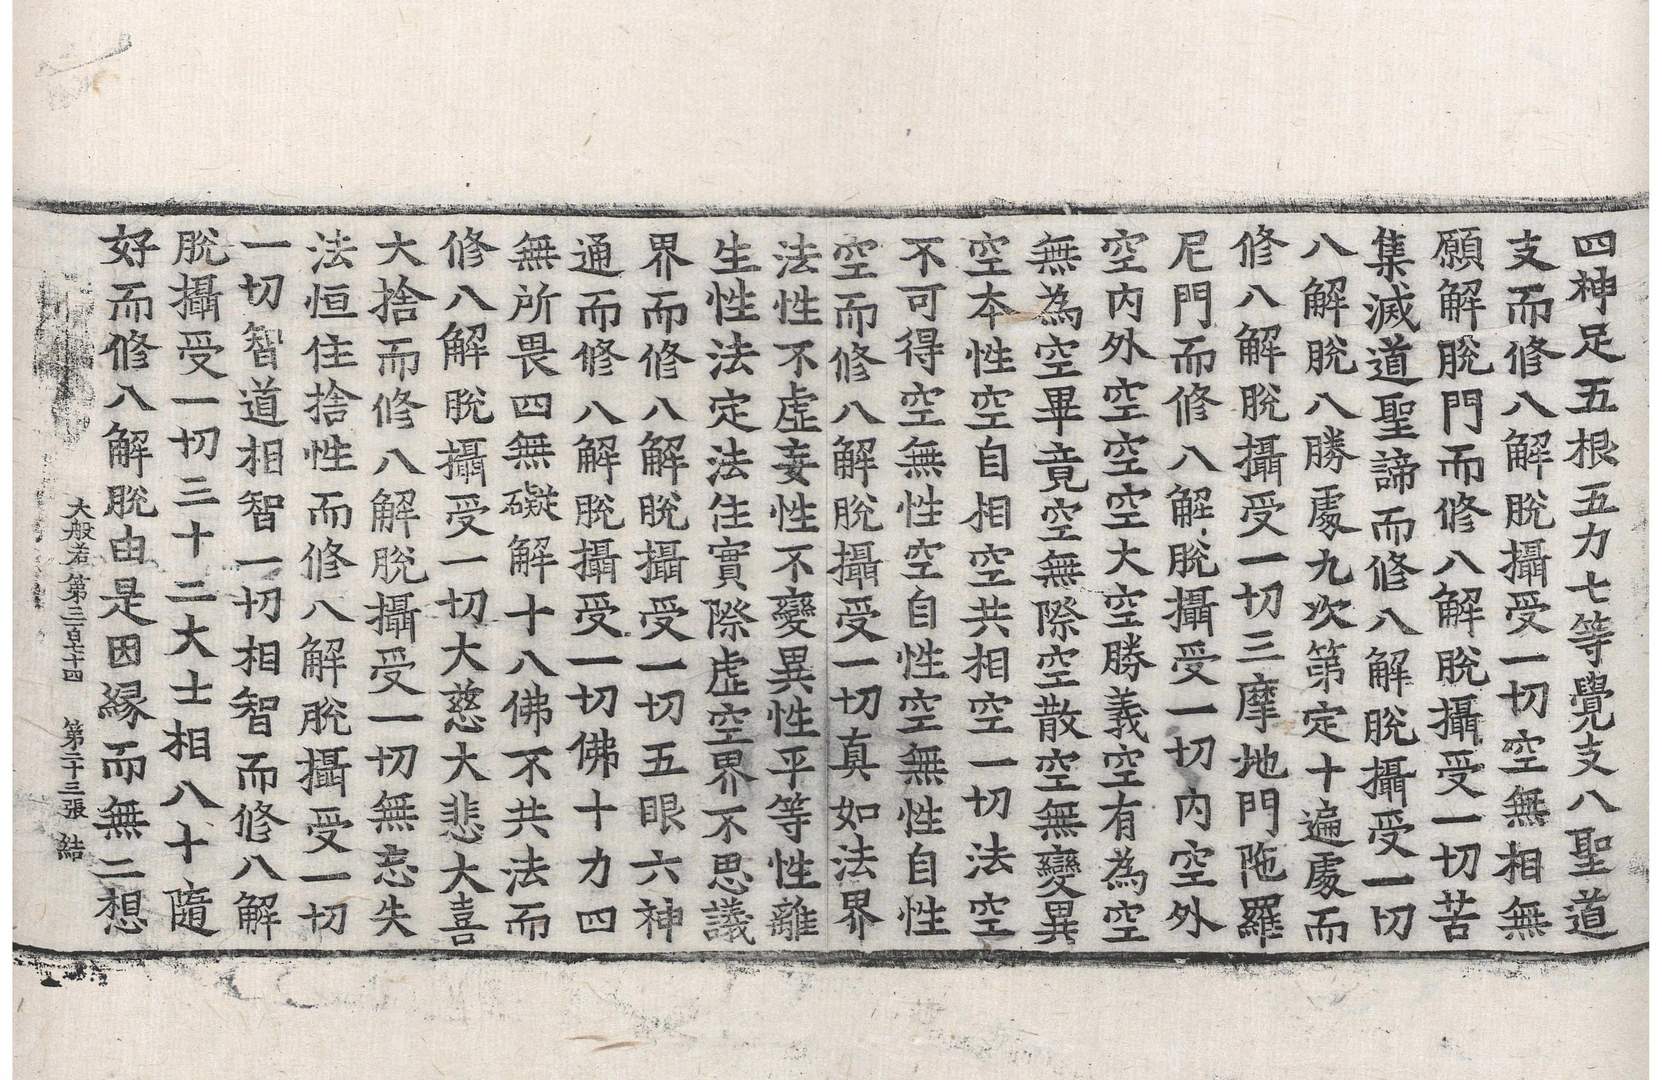 四神足五根五力七等覺支八聖道
支而修八解脫攝受一切空無相無
願解脫門而修八解脫攝受一切苦
集滅道聖諦而修八解脫攝受一切
八解脫八勝處九次第定十遍處而
修八解脫攝受一切三摩地門陁羅
尼門而修八解脫攝受一切內空外
空內外空空空大空勝義空有為空
無為空畢竟空無際空散空無變異
空本性空自相空共相空一切法空
不可得空無性空自性空無性自性
空而修八解脫攝受一切真如法界
法性不虛妄性不變異性平等性離
生性法定法住實際虛空界不思議
界而修八解脫攝受一切五眼六神
通而修八解脫攝受一切佛十力四
無所畏四無礙解十八佛不共法而
修八解脫攝受一切大慈大悲大喜
大捨而修八解脫攝受一切無忘失
法恒住捨性而修八解脫攝受一切
一切智道相智一切相智而修八解
脫攝受一切三十二大士相八十隨
好而修八解脫由是因緣而無二想
大般若第三百七十四 第二十三張 結